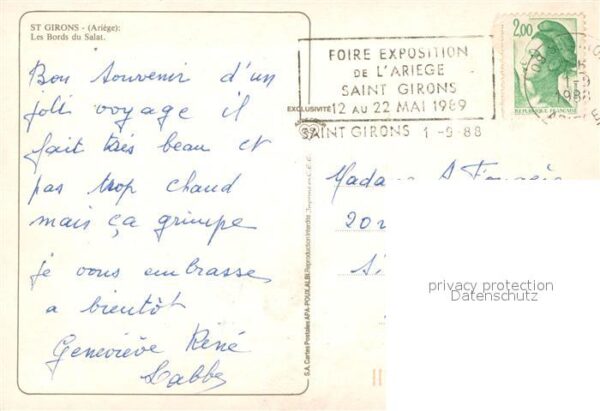 ST GIRONS - (Ariège):
Les Bords du Salat.
Bon souvenir d'un
joli voyage il
fait très beau et
pas trop chaud
mais ça grimpe
je vous embrasse
a bientôt
Geneviève René
Labbe
EXCLUSIVITÉ
S.A. Cartes Postales APA-POUX, ALBI. Reproduction Interdite
FOIRE EXPOSITION
DE L'ARIEGE
SAINT GIRONS
12 AU 22 MAI 1989
SAINT GIRONS 1-9-88
2,00
REPUBLIQUE FRANÇAISE
1988
Madame A
privacy protection
Datenschutz